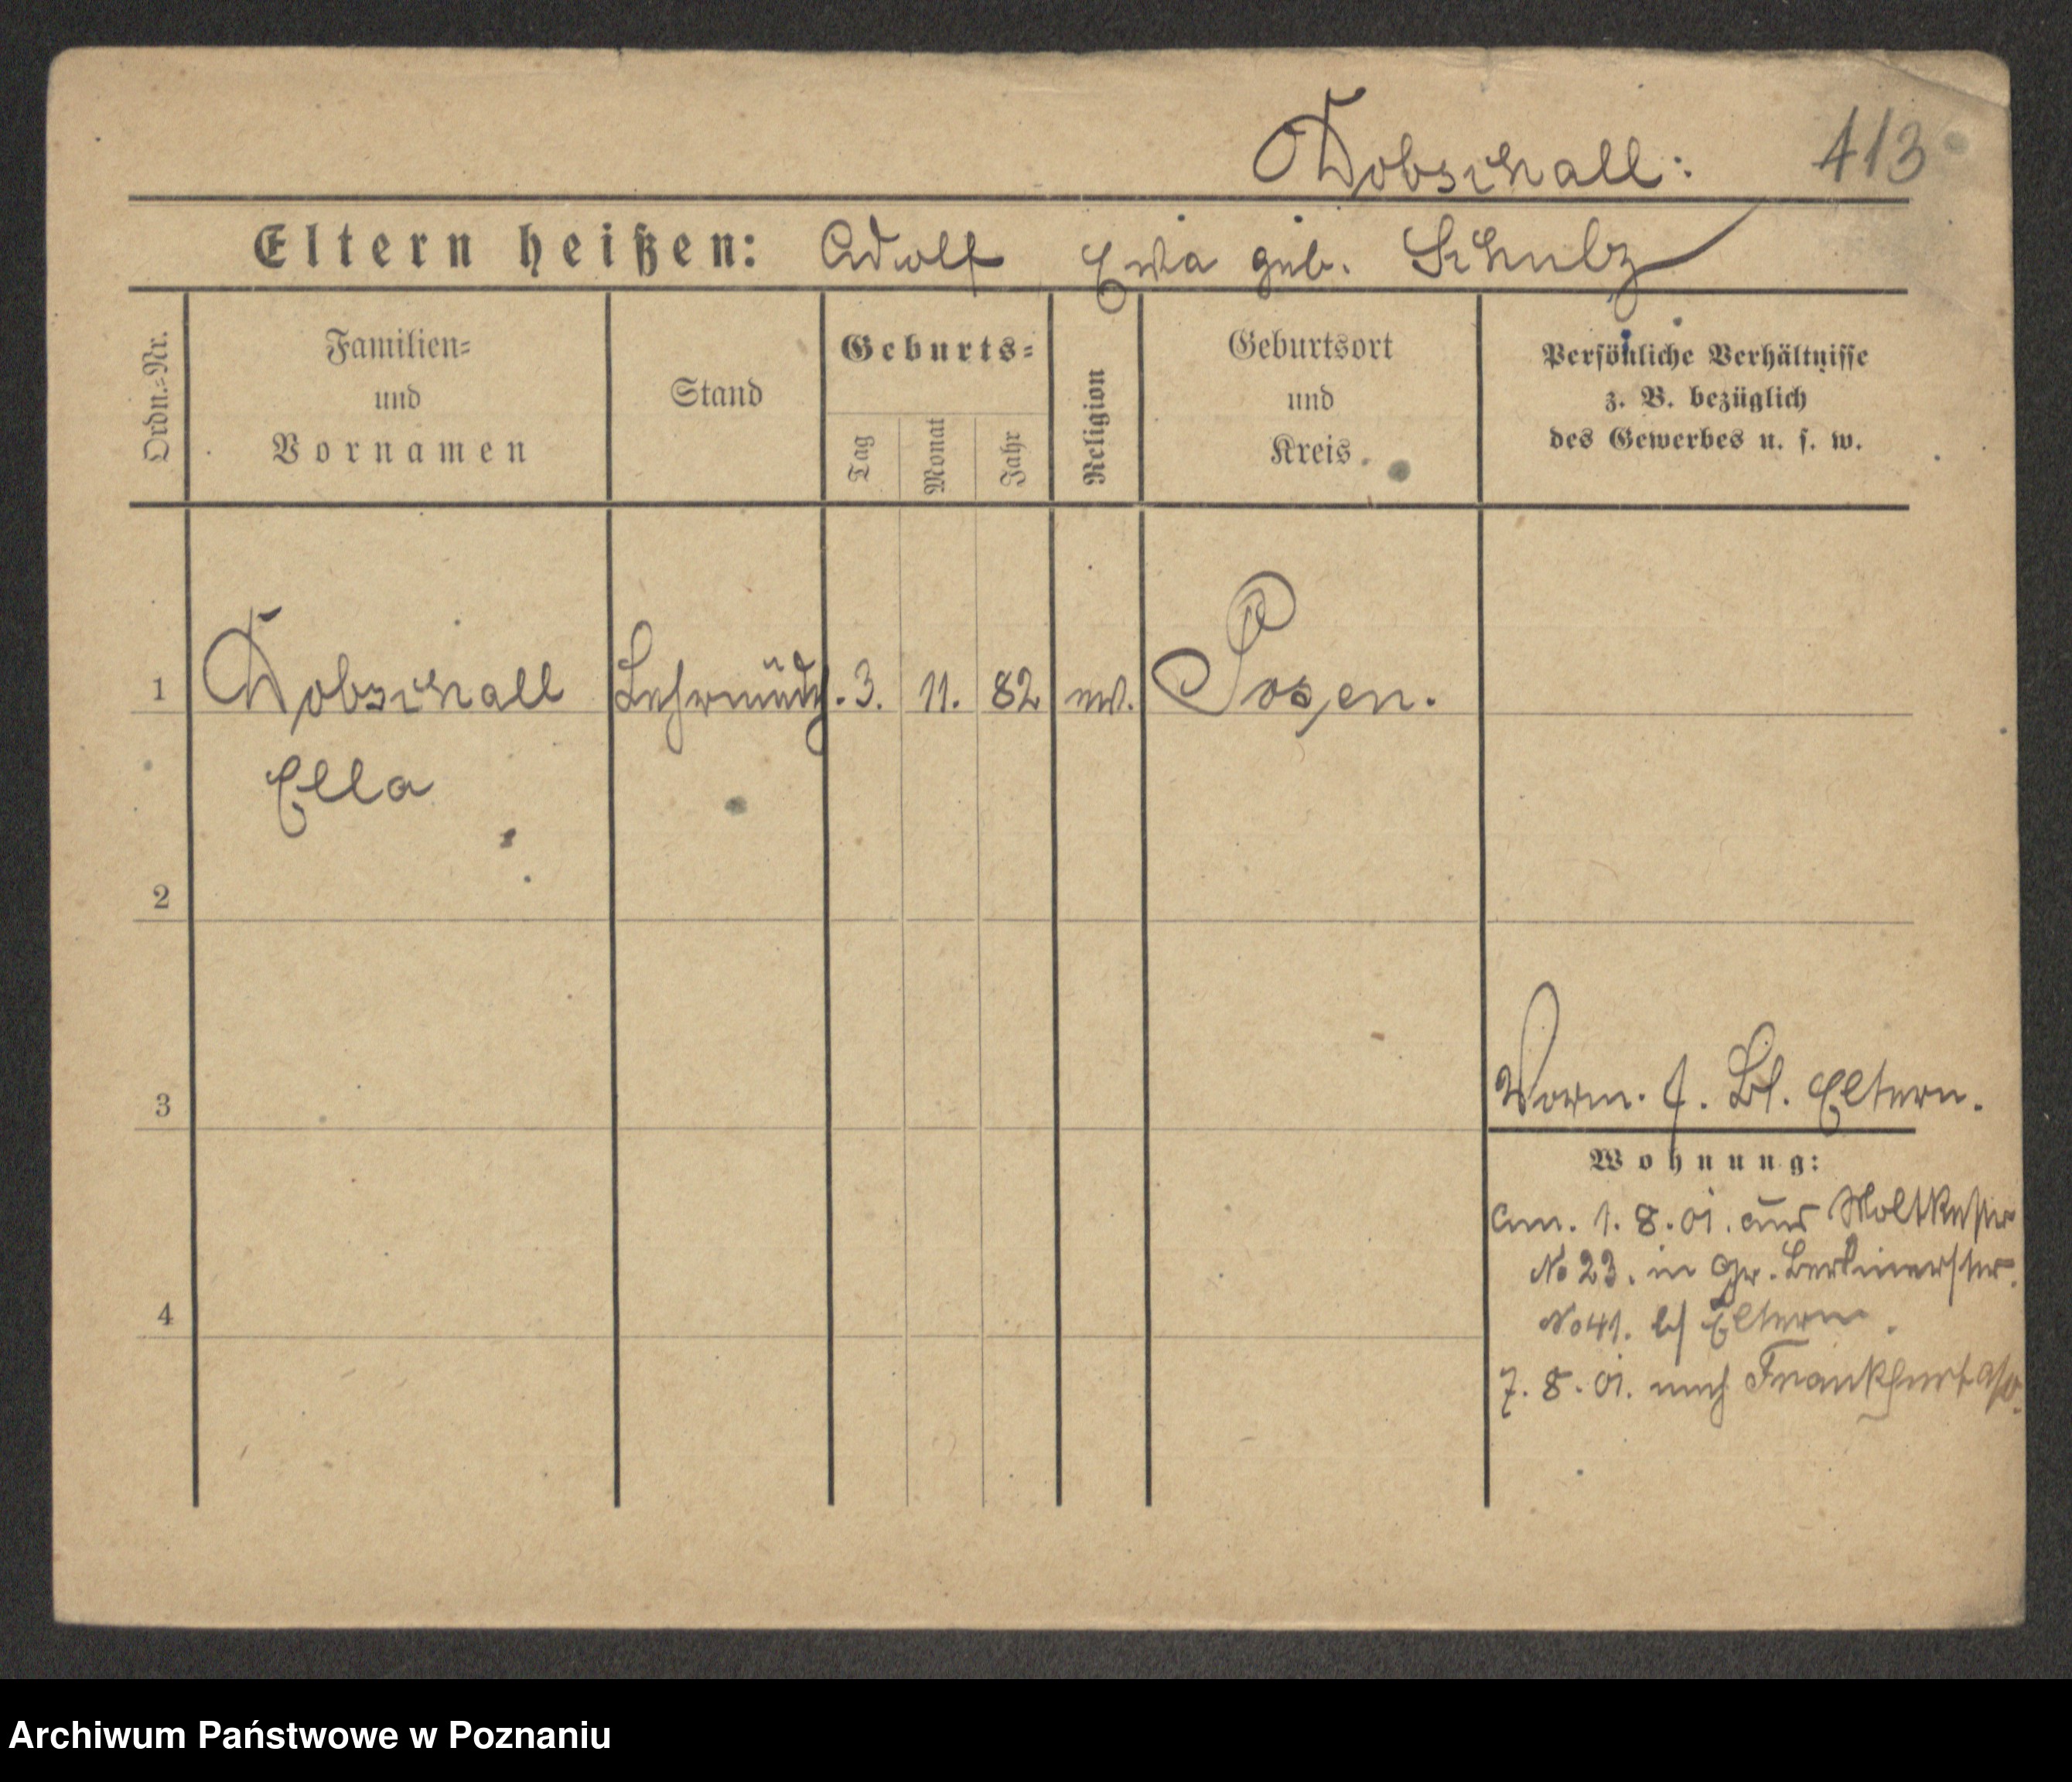 Dobschall:
413
Eltern heißen: Adolf Eva geb. Schulz
Ordn.-Nr.
Familien-
und
Vornamen
Stand
Geburts-
Tag
Monat
Jahr
Religion
Geburtsort
und
Kreis
Persönliche Verhältnisse
z. B. bezüglich
des Gewerbes u. s. w.
1 Dobschall Lehrmädch. 3. 11. 82 ev. Posen.
Ella
2
3
Vorm. f. Bl. Eltern.
Wohnung:
am. 1. 8. 01. aus Moltkestr
No 23. in Gr. Berlinerstr.
4
No 41. b/ Eltern.
7. 8. 01. nach Frankfurt a/O.
Archiwum Państwowe w Poznaniu